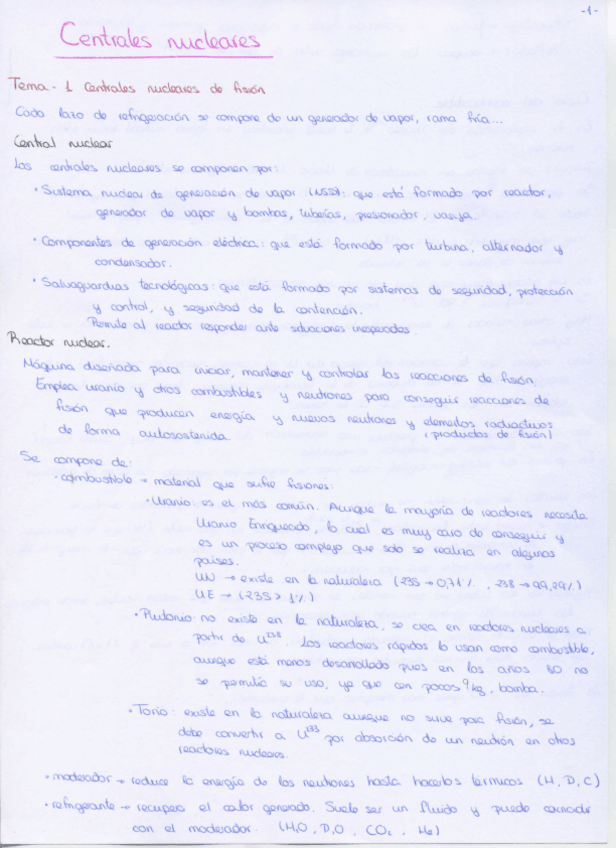 -1-
Centrales nucleares
Tema - 1 Centrales nucleares de fisión
Cada lazo de refrigeración se compone de un generador de vapor, rama fría...
Central nuclear
Las centrales nucleares se componen por:
• Sistema nuclear de generación de vapor (NSSS): que está formado por reactor,
generador de vapor y bombas, tuberías, presionador, vasija.
• Componentes de generación eléctrica: que está formado por turbina, alternador y
condensador.
• Salvaguardias tecnológicas: que está formado por sistemas de seguridad, protección
y control, y seguridad de la contención.
Permite al reactor responder ante situaciones inesperadas.
Reactor nuclear.
Máquina diseñada para iniciar, mantener y controlar las reacciones de fisión.
Emplea uranio y otros combustibles y neutrones para conseguir reacciones de
fisión que producen energía y nuevos neutrones y elementos radiactivos
de forma autosostenida. (productos de fisión)
Se compone de:
• combustible → material que sufre fisiones:
• Uranio: es el más común. Aunque la mayoría de reactores necesita
Uranio Enriquecido, lo cual es muy caro de conseguir y
es un proceso complejo que solo se realiza en algunos
países.
UN → existe en la naturaleza (235 → 0,71%, 238 → 99,29%)
UE → (235 > 1%)
• Plutonio no existe en la naturaleza, se crea en reactores nucleares a
partir de U²³⁸. Los reactores rápidos lo usan como combustible,
aunque está menos desarrollado pues en los años 80 no
se permitía su uso, ya que con pocos kg, bomba.
• Torio: existe en la naturaleza aunque no sirve para fisión, se
debe convertir a U²³³ por absorción de un neutrón en otros
reactores nucleares.
• moderador → reduce la energía de los neutrones hasta hacerlos térmicos (H, D, C)
• refrigerante → recupera el calor generado. Suele ser un fluido y puede coincidir
con el moderador. (H₂O, D₂O, CO₂, He)